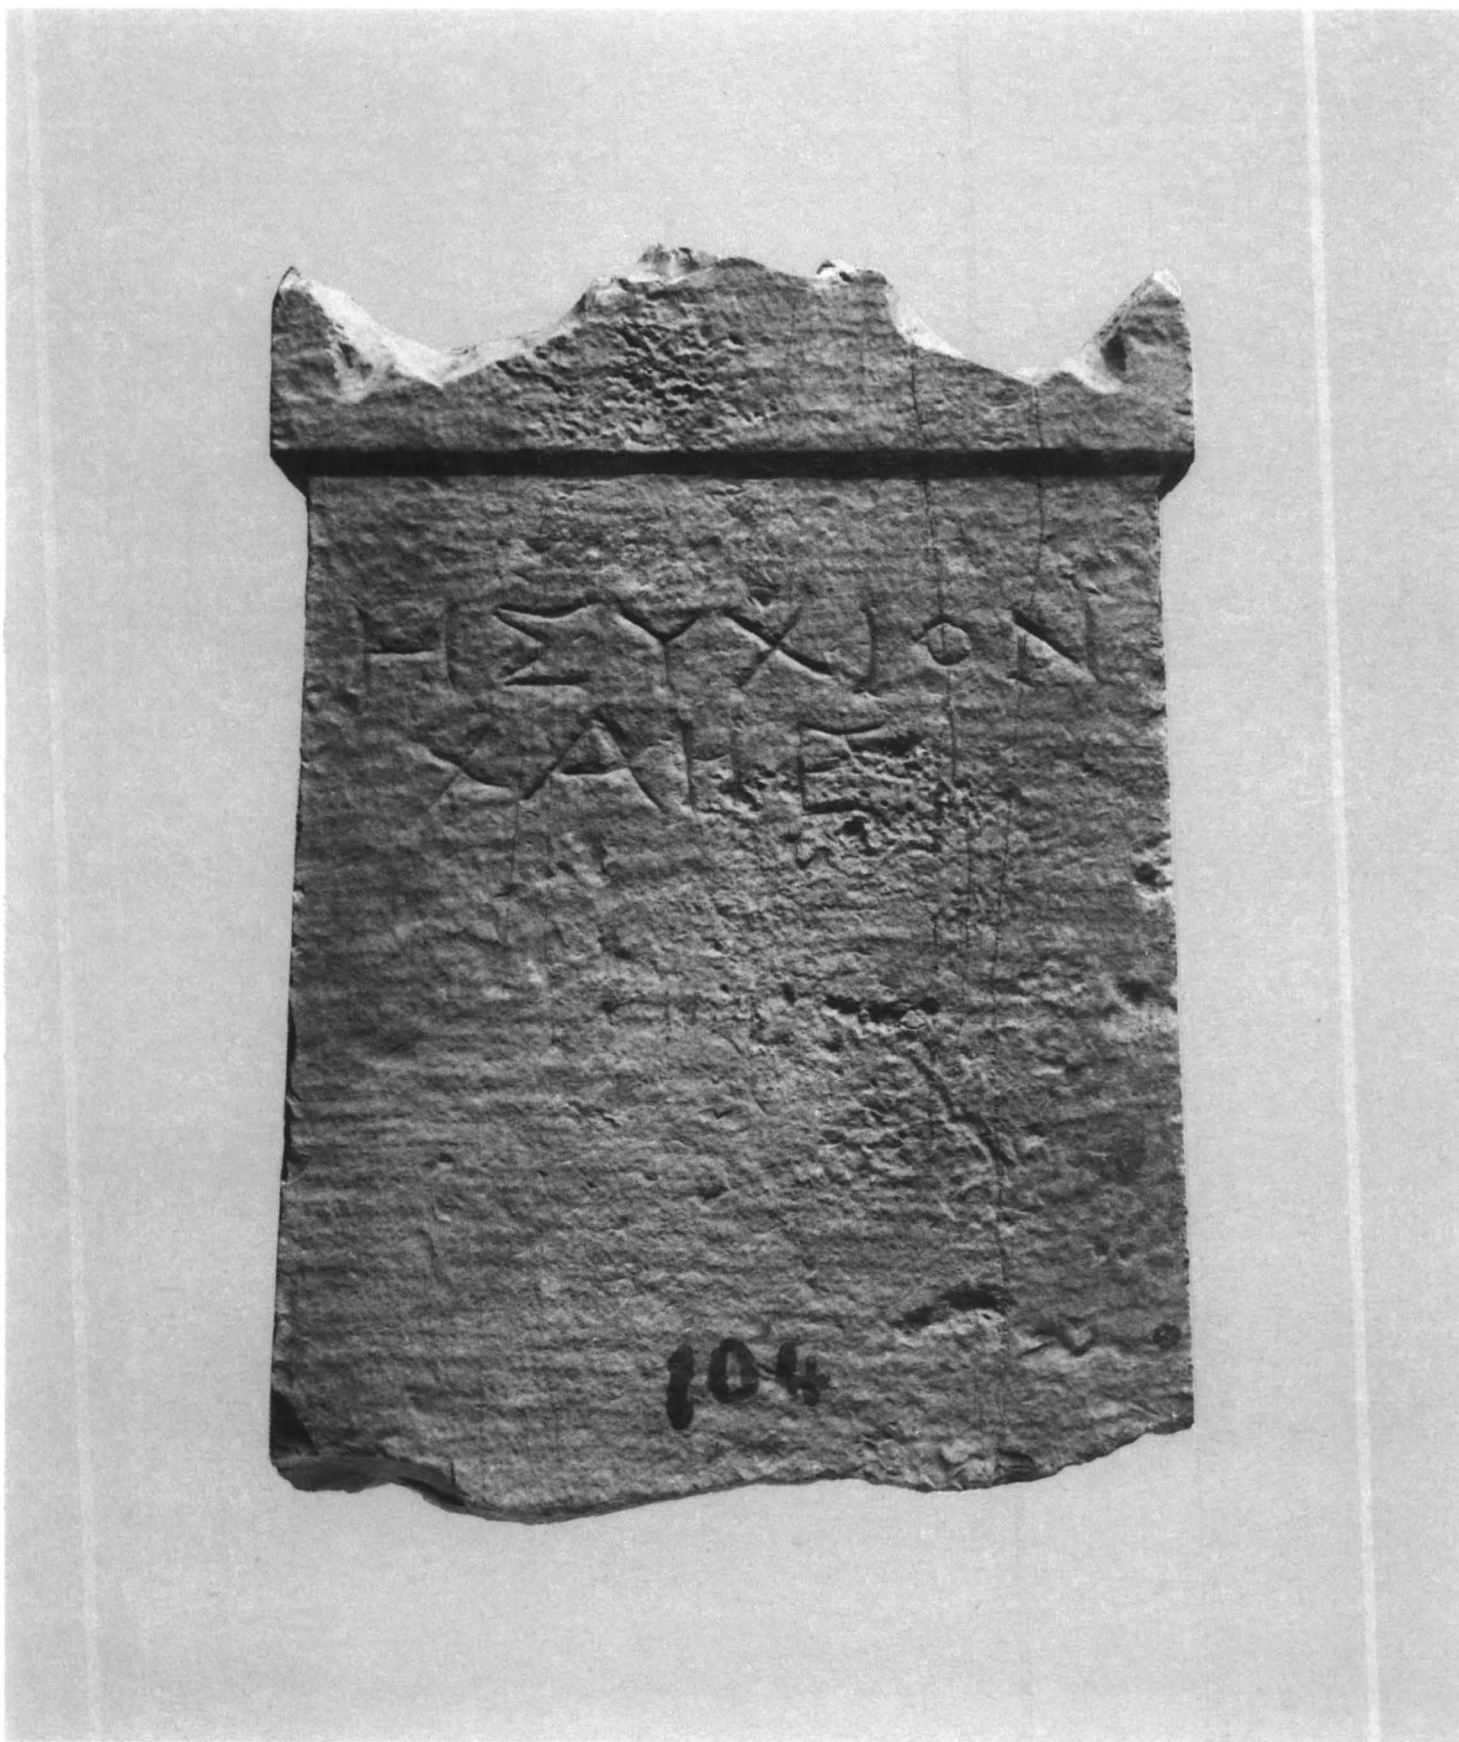 ΗΣΥΧΙΟΝ
ΧΑΙΡΕ
104